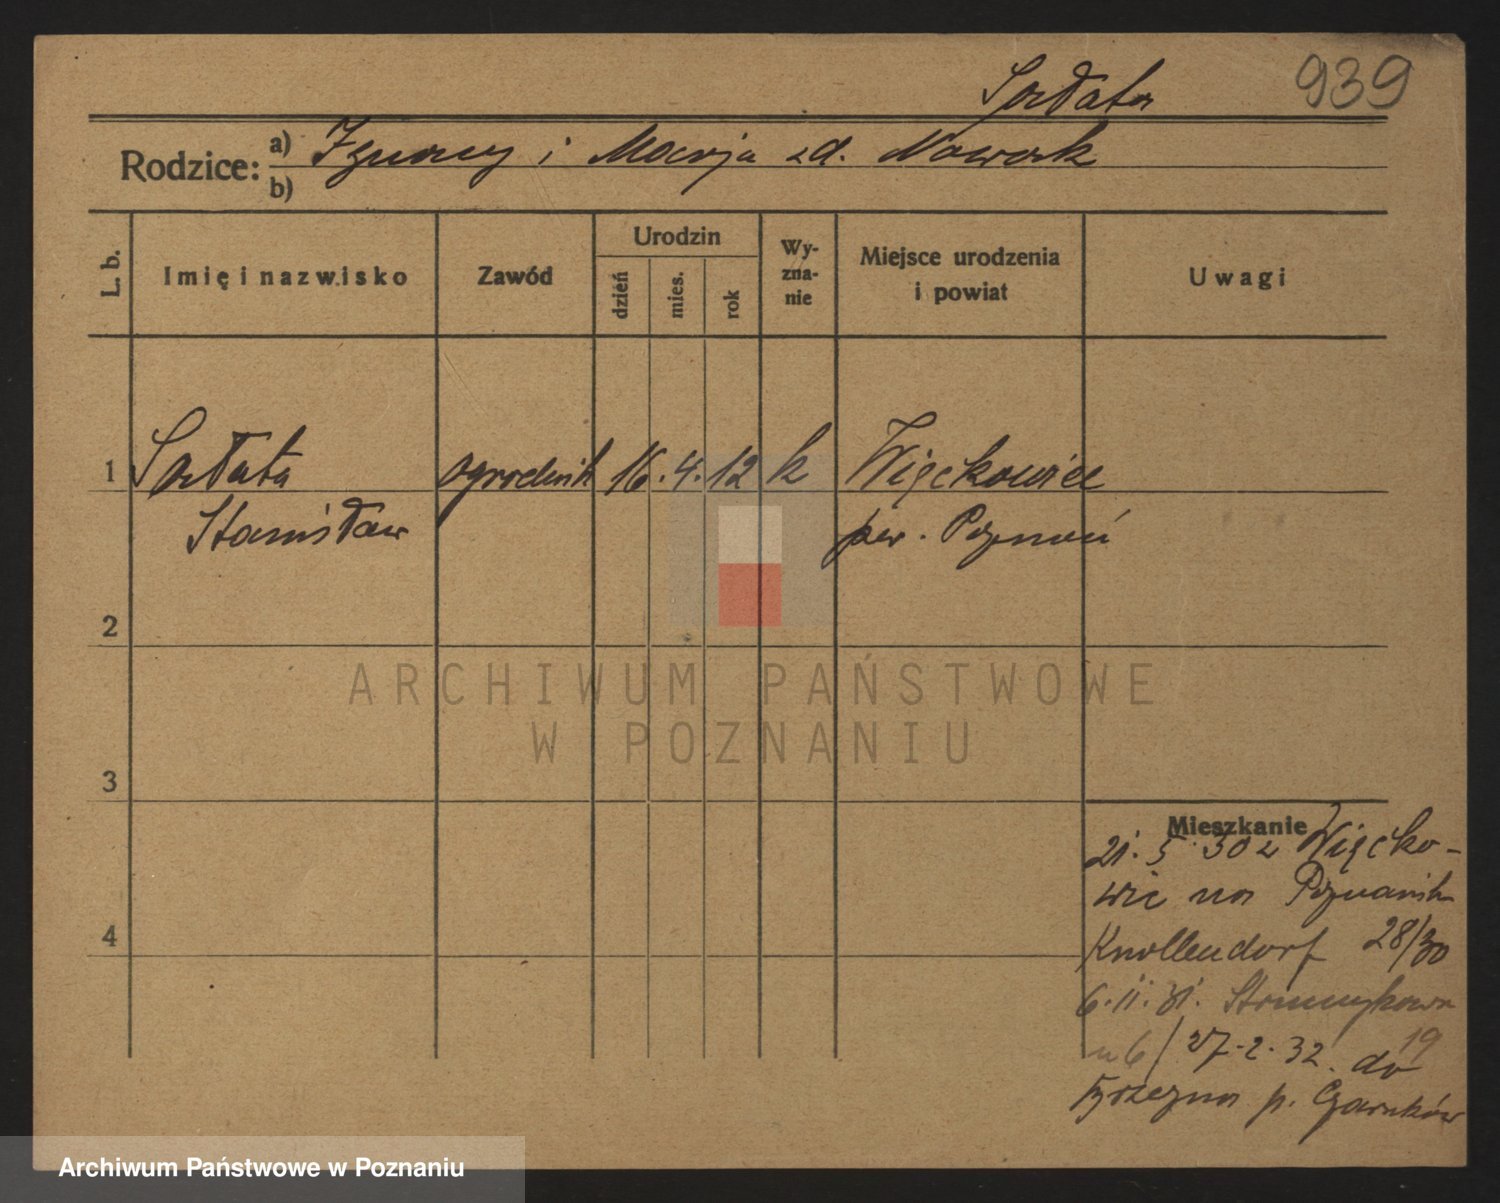 Sałata
939
Rodzice: a) Ignacy i Marja zd. Nowak
b)
L. b.
Imię i nazwisko
Zawód
Urodzin
dzień
mies.
rok
Wy-
zna-
nie
Miejsce urodzenia
i powiat
Uwagi
1 Sałata ogrodnik 16. 4. 12 k Więckowice
Stanisław pow. Poznań
2
3
4
Mieszkanie
21. 5. 30 z Więcko-
wic na Poznańsk
Knollendorf 28/30
6. 11. 31.
n 6/ 27. 2. 32. do
p. Czarnków
19
ARCHIWUM PAŃSTWOWE
W POZNANIU
Archiwum Państwowe w Poznaniu